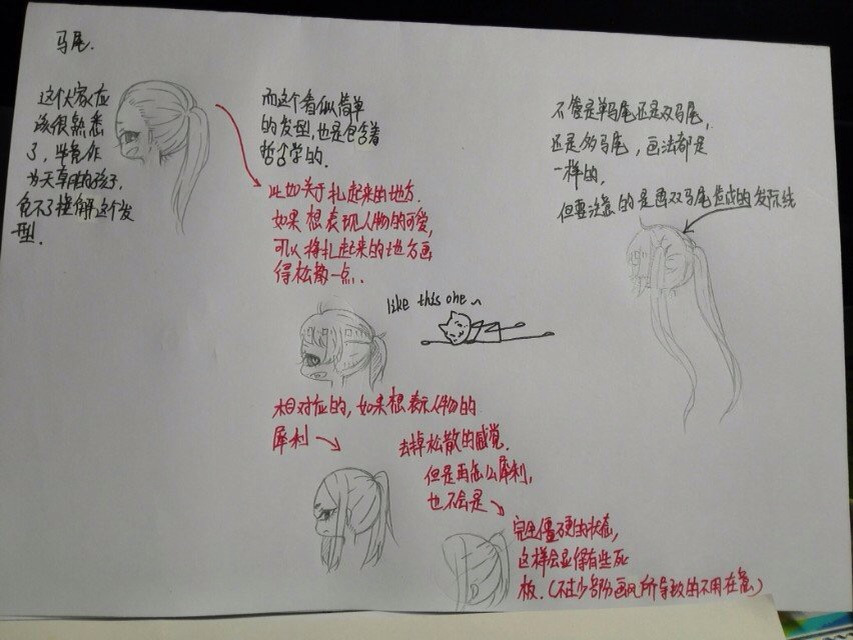 马尾.
这个大家应
该很熟悉
了,毕竟作
为天朝的孩子,
免不了理解这个发
型.
而这个看似简单
的发型,也是包含着
哲学的.
比如关于扎起来的地方.
如果想表现人物的可爱,
可以将扎起来的地方画
得松散一点.
like this one~
相对应的,如果想表示人物的
犀利
去掉松散的感觉.
但是再怎么犀利,
也不会是
完全僵硬的状态,
这样会显得有些死
板.(不过少部份画风所导致的不用在意)
不管是单马尾还是双马尾,
还是多马尾,画法都是
一样的,
但要注意的是画双马尾造成的发际线